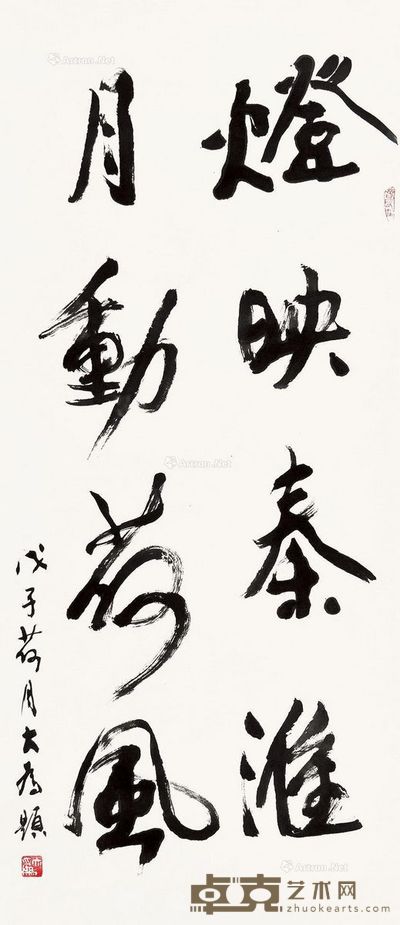 燈映秦淮
月動荷風
戊子荷月大為題
Artron.Net
Artron.Net
Artron.Net
卓克艺术网
zhuokearts.com